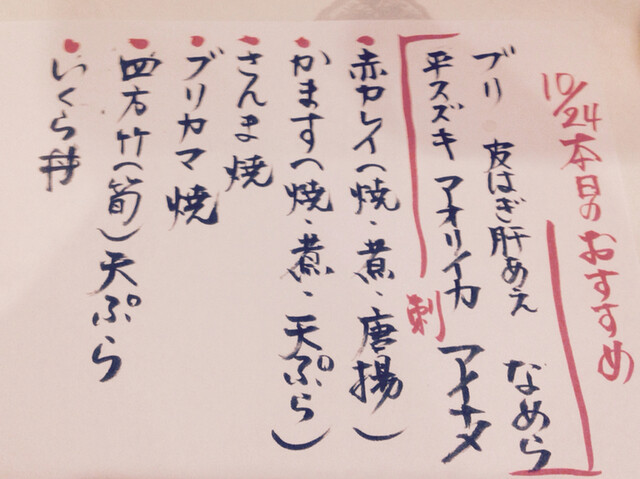 10/24本日のおすすめ
ブリ 皮はぎ肝あえ なめら
平スズキ アオリイカ アイナメ
刺
赤カレイ(焼・煮・唐揚)
かます(焼・煮・天ぷら)
さんま焼
ブリカマ焼
四方竹(筍)天ぷら
いくら丼